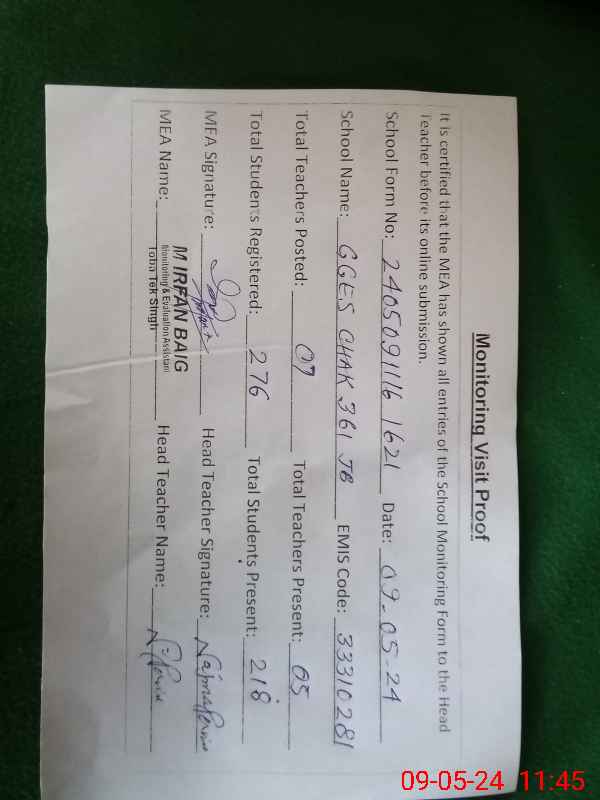 Monitoring Visit Proof
It is certified that the MEA has shown all entries of the School Monitoring Form to the Head
Teacher before its online submission.
School Form No: 24050911161621 Date: 09-05-24
School Name: GGES CHAK 361 JB EMIS Code: 33310281
Total Teachers Posted: 07 Total Teachers Present: 05
Total Students Registered: 276 Total Students Present: 218
MEA Signature: Head Teacher Signature: Najma Parvin
MEA Name: M IRFAN BAIG Head Teacher Name: N. Parvin
Monitoring & Evaluation Assistant
Toba Tek Singh
09-05-24 11:45